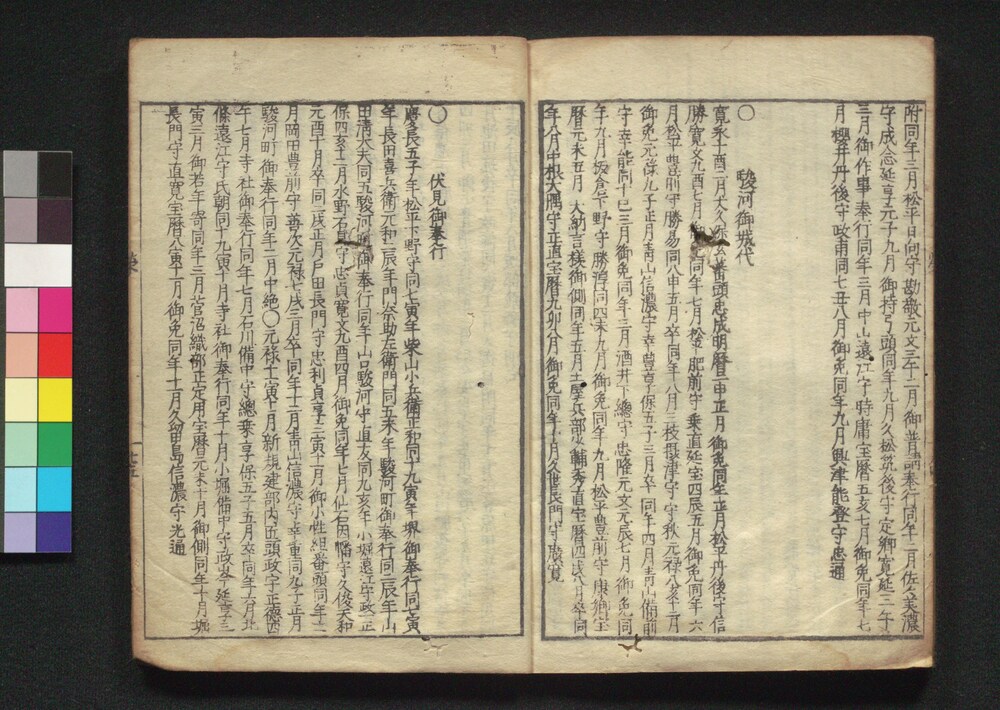 附同年三月松平日向守勘敬元文三午二月御普請奉行同年十二月佐々美濃
守成念延享元子九月御持弓頭同年九月久松筑後守定郷寛延三午
三月御作事奉行同年三月中山遠江守時庸宝暦五亥七月御免同年七
月櫻井丹後守政甫同七丑八月御免同年九月興津能登守忠通
○ 駿河御城代
寛永十酉二月大久保 番頭忠成明暦二申正月御免同年正月松平丹後守信
勝寛文九酉七月御 同年七月松平肥前守乗直延宝四辰五月御免同年六
月松平豊前守勝易同八申五月卒同年八月三枝摂津守守秋元禄八亥十二月
御免元禄九子正月青山信濃守幸豊享保五子三月卒同年四月青山備前
守幸能同十巳三月御免同年三月酒井下総守忠隆元文元辰七月御免同
年九月板倉下野守勝澄同四未九月御免同年九月松平豊前守康郷宝
暦元未五月大納言様御側同年五月土屋兵部少輔秀直宝暦四戌八月卒同
年八月中根大隅守正直宝暦九卯八月御免同年十月久世長門守 寛
○ 伏見御奉行
慶長五子年松平下野守同七寅年柴山小兵衛正和同十九寅年堺御奉行同七寅
年長田喜兵衛元和二辰年門奈助左衛門同五未年駿河町御奉行同二辰年山
田清太夫同五駿河町御奉行同年山口駿河守直友同九亥年小堀遠江守政一正
保四亥十二月水野石見守忠貞寛文九酉四月御免同年七月仙石因幡守久俊天和
元酉十月卒同二戌正月戸田長門守忠利貞享三寅十一月御小性組番頭同年十二
月岡田豊前守善次元禄七戌三月卒同年十二月青山信濃守幸豊同九子正月
駿河町御奉行同年二月中絶○元禄十一寅十月新規建部内匠頭政宇正徳四
午七月寺社御奉行同年七月石川備中守總乗享保五子五月卒同年六月北
條遠江守氏朝同十九寅十月寺社御奉行同年十月小堀備中守政峯延享三
寅三月御若年寄同年三月菅沼織部正定用宝暦元未十月御側同年十月堀
長門守直寛宝暦八寅十一月御免同年十一月久留島信濃守光通